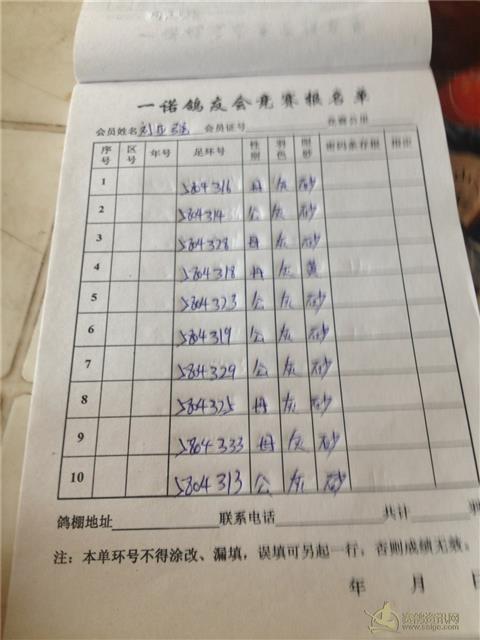 一诺鸽友会竞赛报名单
会员姓名 会员证号
序号 区号 年号 足环号 性别 羽色 眼砂
1 5804316 母 灰 砂
2 5804314 公 灰 砂
3 5804328 母 灰 砂
4 5804318 母 灰 黄
5 5804323 公 灰 砂
6 5804319 公 灰 砂
7 5804329 公 灰 砂
8 5804325 母 灰 砂
9 5804333 母 灰 砂
10 5804313 公 灰 砂
鸽棚地址 联系电话 共计
注：本单环号不得涂改、漏填，误填可另起一行，否则成绩无效。
年 月 日
赛鸽资讯网
www.saige.com